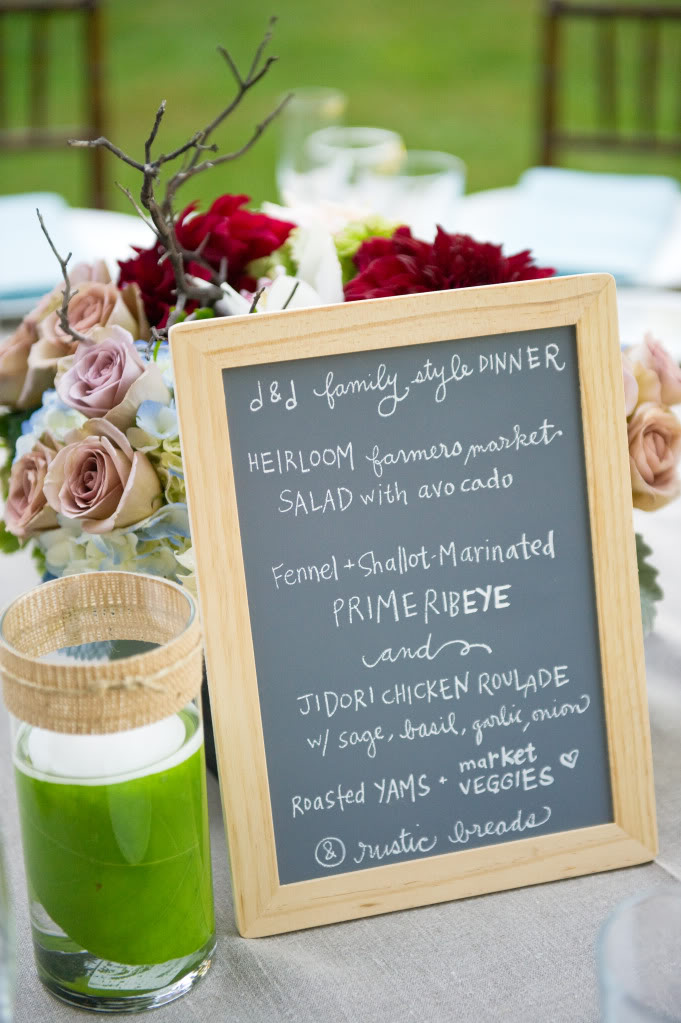 d&d family style DINNER
HEIRLOOM farmers market
SALAD with avocado
Fennel + Shallot-Marinated
PRIME RIBEYE
and
JIDORI CHICKEN ROULADE
w/ sage, basil, garlic, onion
Roasted YAMS + market VEGGIES ♡
& rustic breads